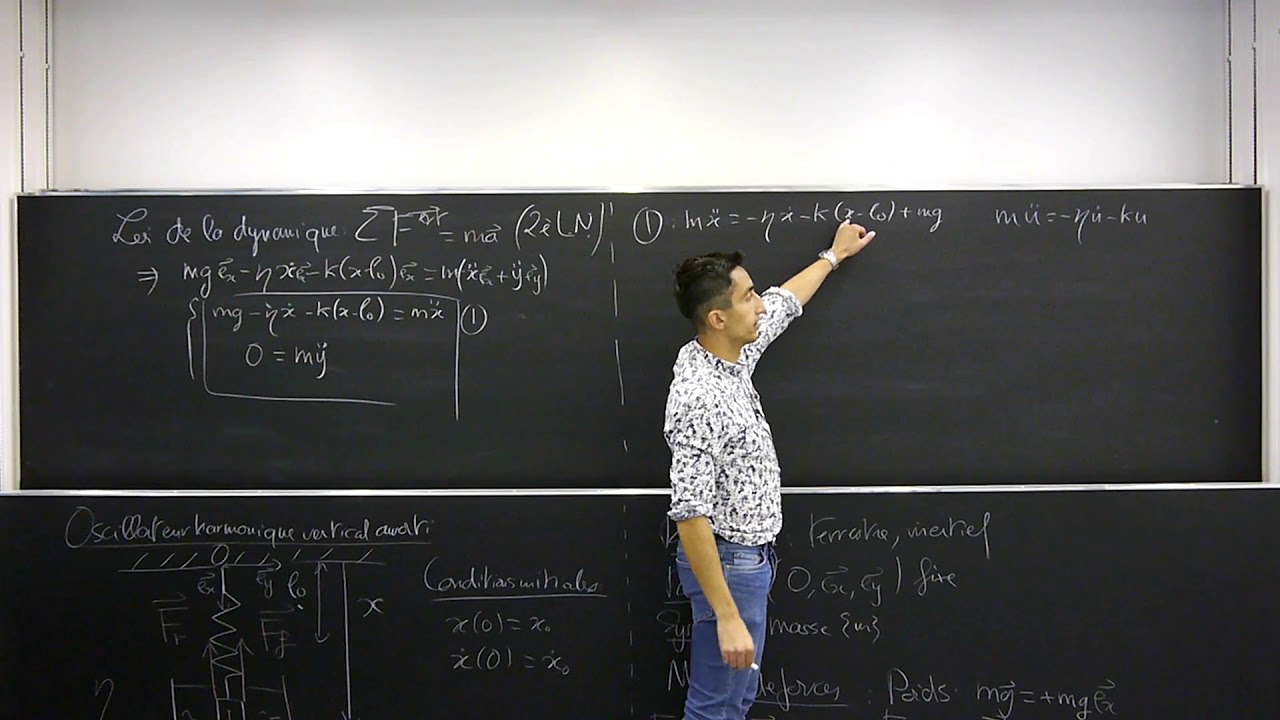 Loi de la dynamique: ΣF⃗ext = ma⃗ (2è L.N.)
⇒ mg e⃗x - ηẋ e⃗x - k(x-l₀)e⃗x = m(ẍe⃗x + ÿe⃗y)
mg - ηẋ - k(x-l₀) = mẍ ①
0 = mÿ
①: mẍ = -ηẋ - k(x-l₀) + mg
mü = -ηu̇ - ku
Oscillateur harmonique vertical amorti:
O
e⃗x e⃗y l₀ x
F⃗r F⃗f
η
Conditions initiales
x(0) = x₀
ẋ(0) = ẋ₀
: terrestre, inertiel
O, e⃗x, e⃗y) fixe
masse {m}
de forces : Poids: mg⃗ = +mg e⃗x